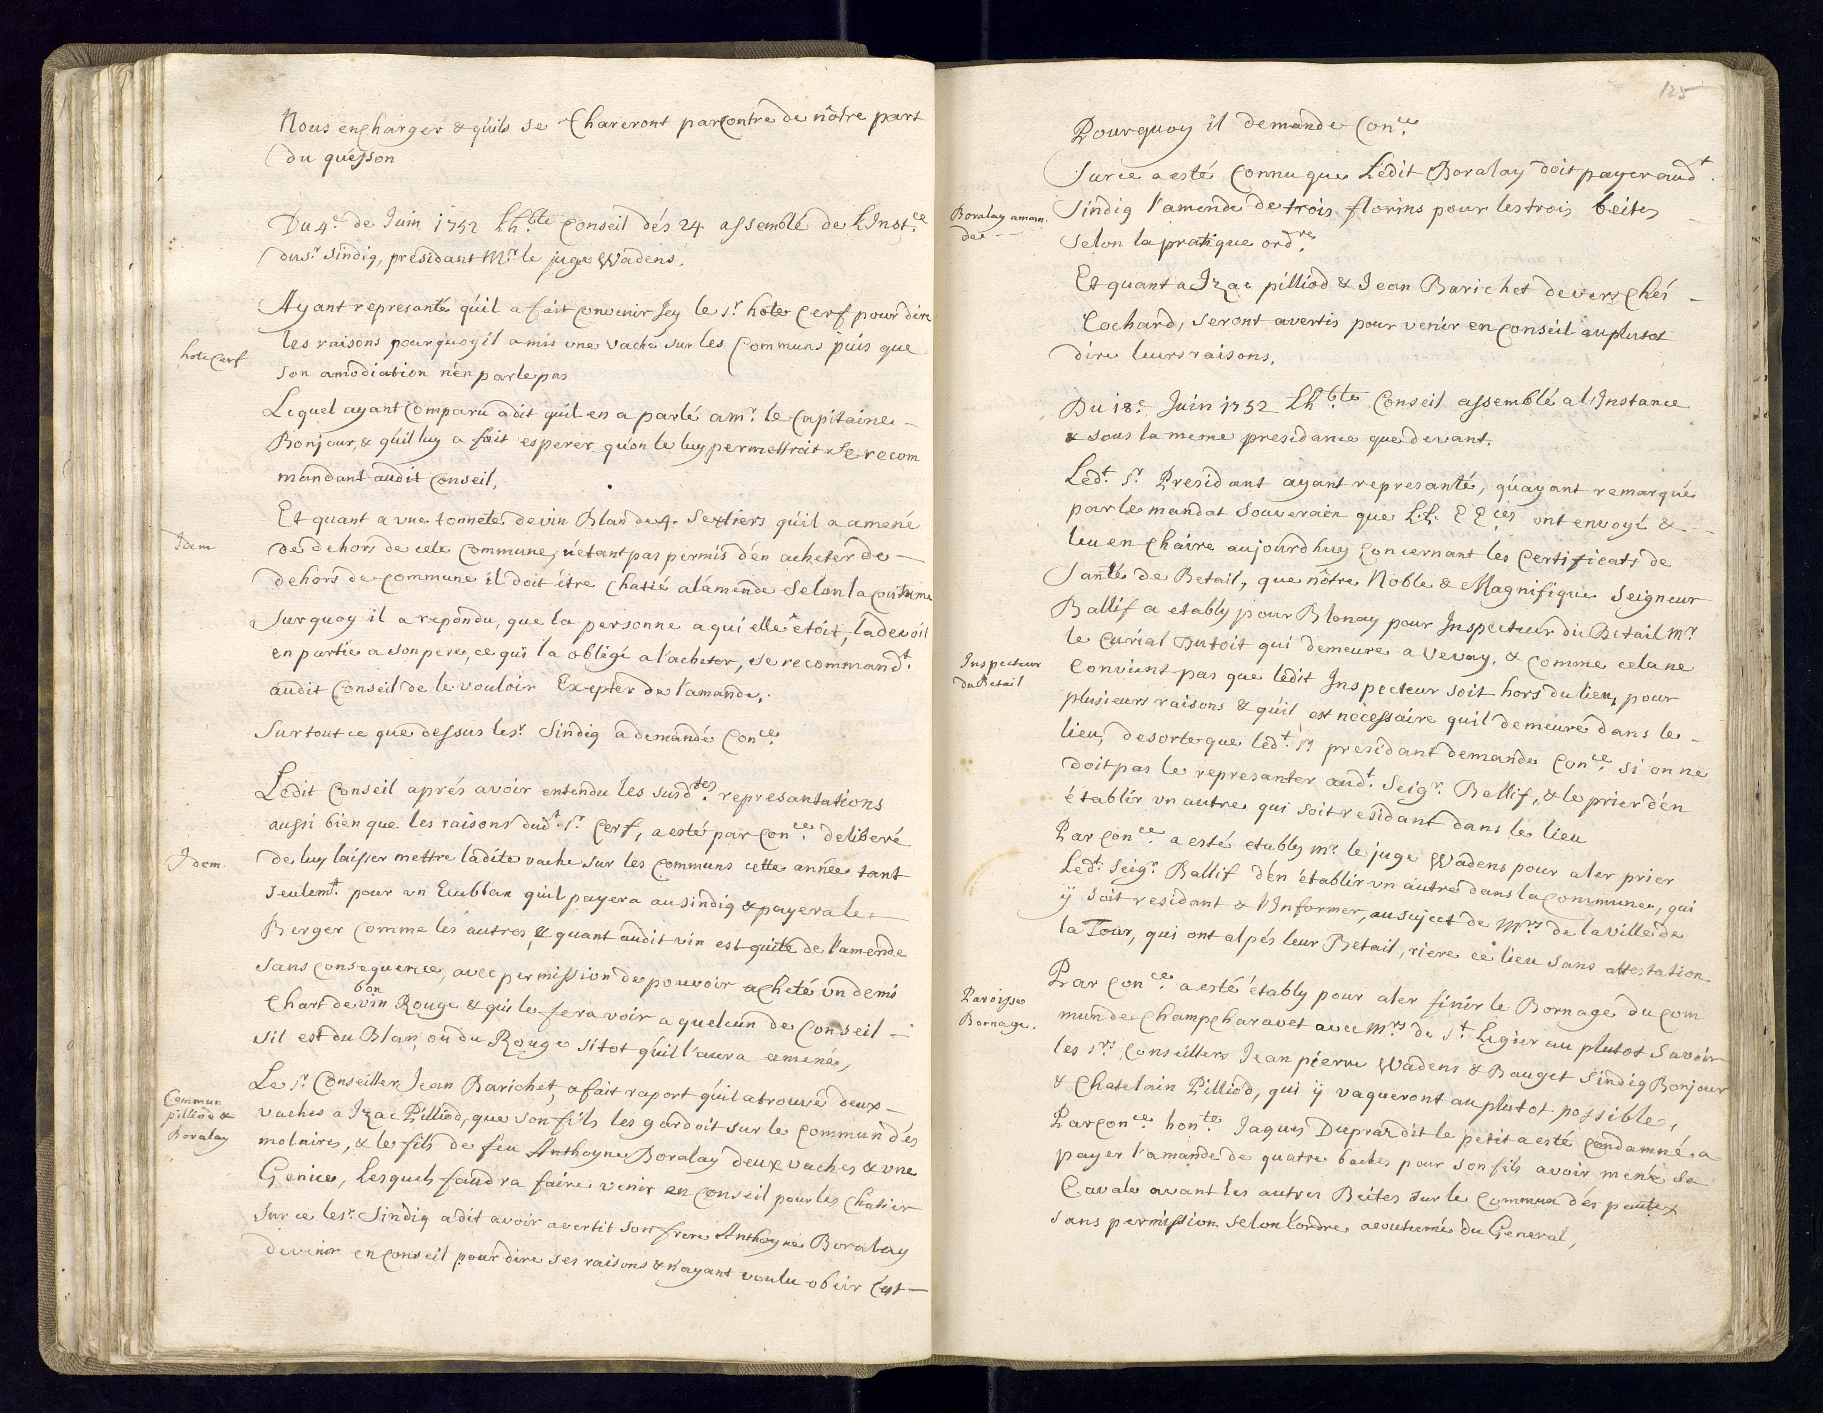 Nous encharger & quils se Chareront parcontre de nôtre part
du quésson
Du 4e. de Juin 1752 Lh.ble Conseil dés 24 assemblé de L'Inst.ce
du sr. Sindiq, présidant Mr. le juge Wadens.
Ayant represanté quil a fait convenir Jcy le sr. hote Cerf pour dire
les raisons pourquoy il a mis une vache sur les Communs puis que
hote Cerf
son amodiation n'en parle pas
Lequel ayant Comparu a dit quil en a parlé a mr. le Capitaine
Bonjour, & quil luy a fait esperer quon le luy permettroit Se recom
mandant audit Conseil,
Et quant a une tonnete de vin Blan de 4. Sextiers quil a amené
Idem
dé dehors de cete Commune, n'etant pas permis d'en acheter de
dehors de commune il doit être Chatié a l'amende Selon la coutume
Surquoy il a repondu, que la personne a qui elle étoit, la devoit
en partie a son pere, ce qui la obligé a l'acheter, se recommandt.
audit Conseil de le vouloir Exepter de l'amande,
Sur tout ce que dessus le sr. Sindiq a demandé Con.ce
Ledit Conseil aprés avoir entendu les susd.tes represantations
aussi bien que les raisons dudt. Sr. Cerf, a esté par con.ce deliberé
Idem.
de luy laisser mettre ladite vache sur les communs cette année tant
seulemt. pour un Eublan quil payera au sindiq & payera le
Berger comme les autres, & quant audit vin est quite de l'amende
sans consequence, avec permission de pouvoir acheté un demi
Chart de bon vin Rouge & quil le fera voir a quelcun de Conseil
sil est du Blan, ou du Rouge sitot quil l'aura amené,
Le Sr. Conseiller Jean Barichet, a fait raport quil a trouvé deux
Commun
pilliod &
Boralay
vaches a Izac Pilliod, que son fils les gardoit sur le commun dés
molaires, & le fils de feu Anthoyne Boralay deux vaches & une
Genice, Lesquels faudra faire venir en Conseil pour les Chatier
Sur ce le sr. Sindiq a dit avoir avertit son frere Anthoyne Boralay
de venir en Conseil pour dire ses raisons & n'ayant voulu obeir C'est
125
Pourquoy il demande Con.ce
Sur ce a esté Connu que Ledit Boralay doit payer audt.
Boralay aman
dé
Sindiq l'amende de trois florins pour les trois beites
selon la pratique ord.re
Et quant a Izac pilliod & Jean Barichet devers Chés
Cochard, seront avertis pour venir en conseil au plutot
dire leurs raisons.
Du 18e. Juin 1752 Lh.ble Conseil assemblé a l'Instance
& sous la meme presidance que devant.
Ledt. Sr. Presidant ayant represanté, qu'ayant remarqué
par le mandat Souverain que LL. EE.ces ont envoyé &
leu en Chaire aujourdhuy Concernant les Certificats de
Santé de Betail, que nôtre Noble & Magnifique Seigneur
Ballif a etably pour Blonay pour Inspecteur du Betail mr.
le Curial Dutoit qui demeure a Vevay. & comme cela ne
Inspecteur
du Betail
Convient pas que ledit Inspecteur soit hors du lieu, pour
plusieurs raisons & quil est necessaire quil demeure dans le
lieu, desorte que ledt. Sr. presidant demande Con.ce si on ne
doit pas le represanter audt. Seigr. Ballif, & le prier d'en
établir un autre qui soit residant dans le lieu
Par Con.ce a esté etably mr. le juge Wadens pour aler prier
Ledt. Seigr. Ballif d'en établir un autre dans la commune, qui
ÿ soit residant & l'Informer, au suject de Mrs. de la Ville de
la Tour, qui ont alpés leur Betail, riere ce lieu sans attestation
Par Con.ce a esté étably pour aler finir le Bornage du Com
Paroisse
Bornage.
mun de Champcharavet avec mrs. de St. Legier au plutot Savoir
les Srs. Conseillers Jean pierre Wadens & Bauget Sindiq Bonjour
& Chatelain Pilliod, qui ÿ vaqueront au plutot possible,
Par Con.ce hon.te Jaques Duprar dit le petit a esté Condamné a
payer l'amande de quatre baches pour son fils avoir mené Sa
Cavale avant les autres Beites sur le Commun dés
sans permission selon l'ordre acoutumé du General,